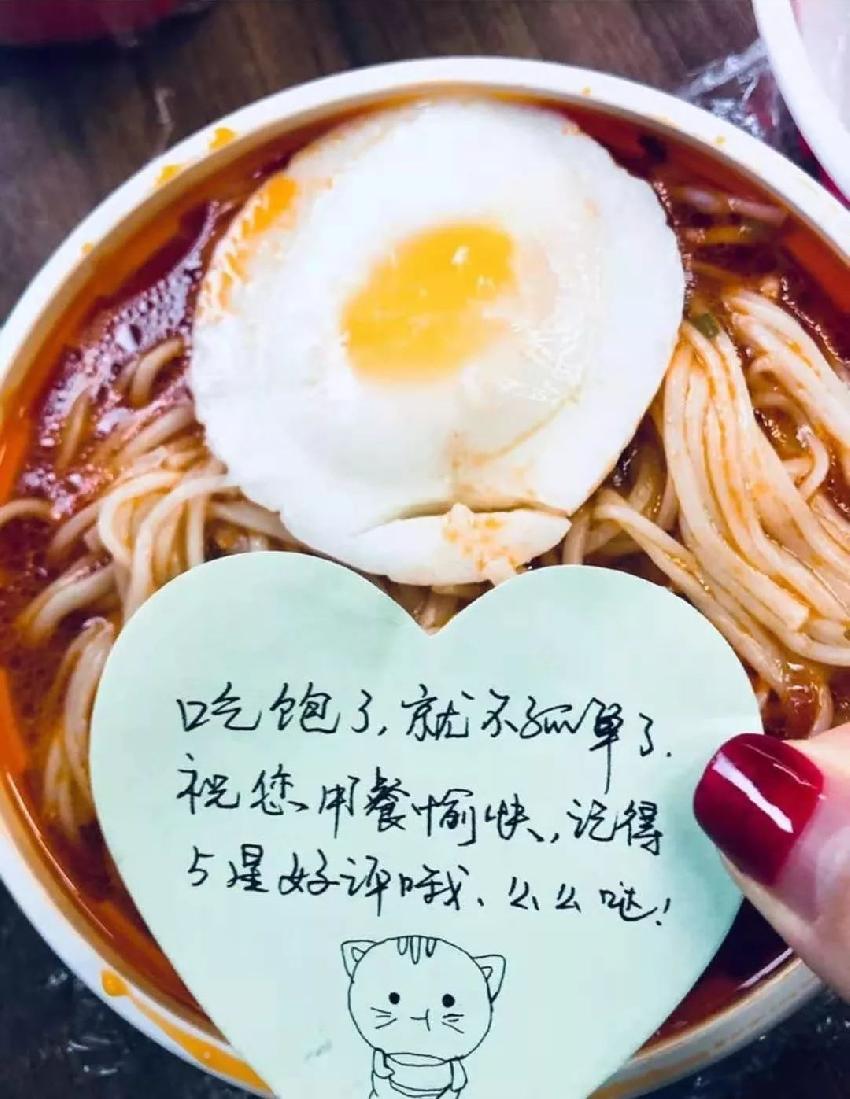 吃饱了,就不孤单了.
祝您用餐愉快,记得
5星好评哦、么么哒!